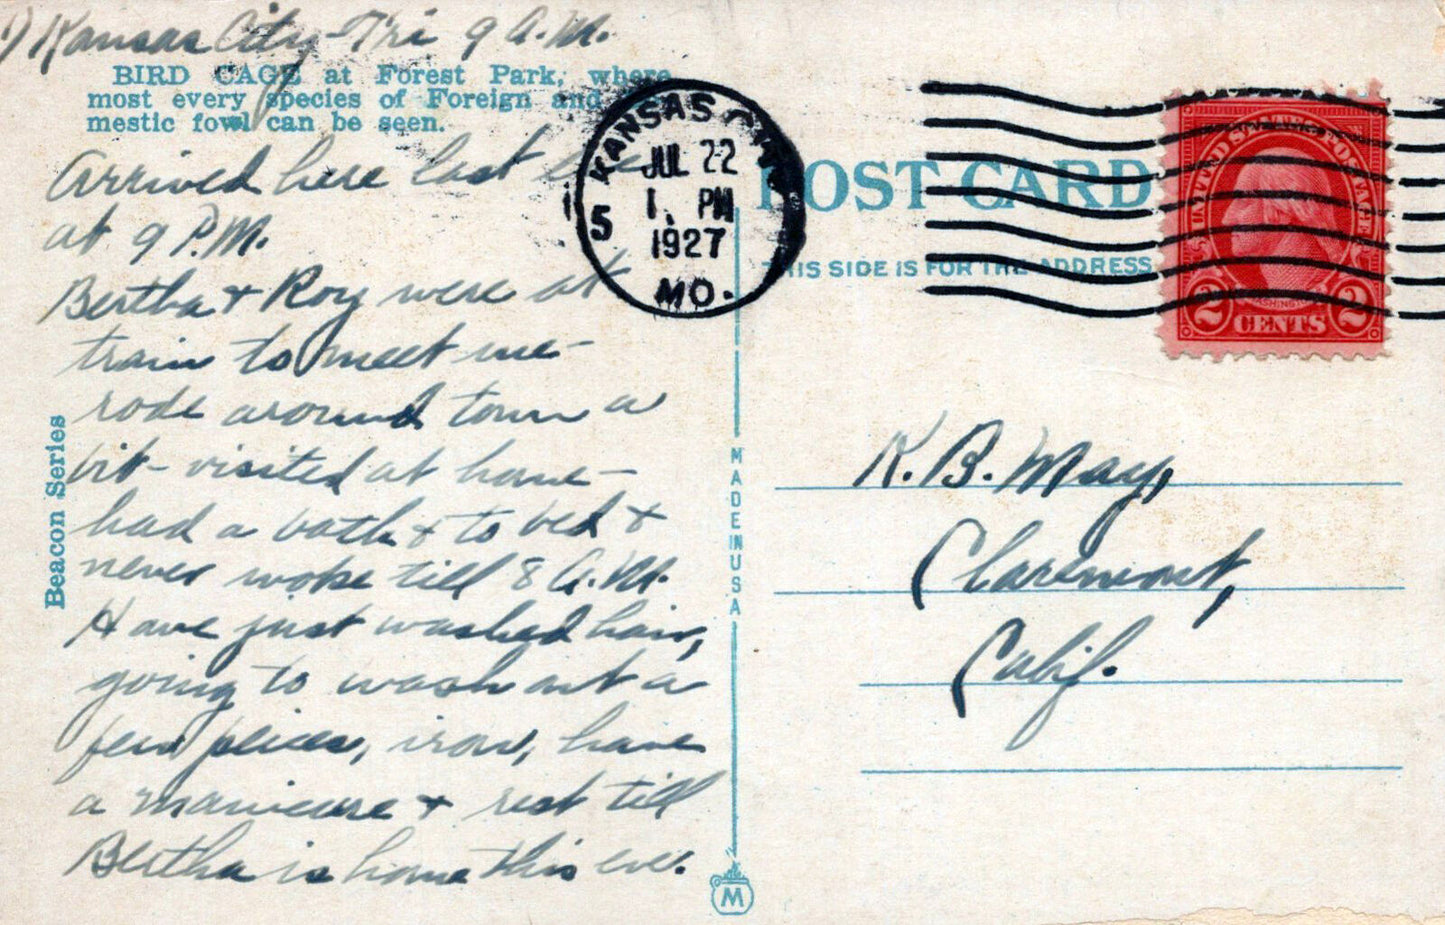 1) Kansas City - Fri 9 A.M.
BIRD CAGE at Forest Park, where
most every species of Foreign and
mestic fowl can be seen.
Arrived here last eve
at 9 P.M.
Bertha & Roy were at
train to meet me -
rode around town a
bit - visited at home -
had a bath & to bed &
never woke till 8 A.M.
Have just washed hair,
going to wash out a
few peices, iron, have
a manicure & rest till
Bertha is home this eve.
Beacon Series
MADE IN USA
M
KANSAS CITY
JUL 22
1 PM
5
1927
MO.
POST CARD
THIS SIDE IS FOR THE ADDRESS
UNITED STATES POSTAGE
WASHINGTON
2 CENTS 2
K. B. May,
Claremont,
Calif.